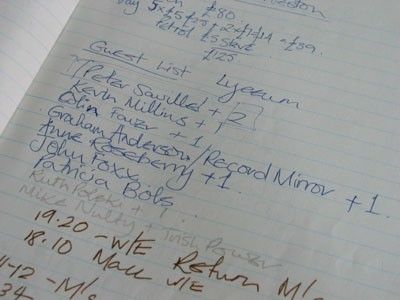 £80
5x£5 £25 + 2x£7 £14 = £39
Petrol £5 Steve
£125
Guest List Lyceum
Peter Saville + 2
Kevin Millins + 1
Colin Favor + 1
Graham Anderson/Record Mirror + 1
Anne Roseberry + 1
John Foxx
Patricia Bols
Ruth Polski + 1
Mike Nulty + Trish
19.20 - W/E Return M/
18.10 Macc W/E
11-12 - M/
34